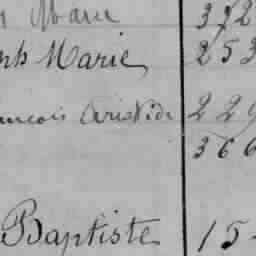 Marie 372
ph Marie 253
ancois Aristide 229
366
Baptiste 15